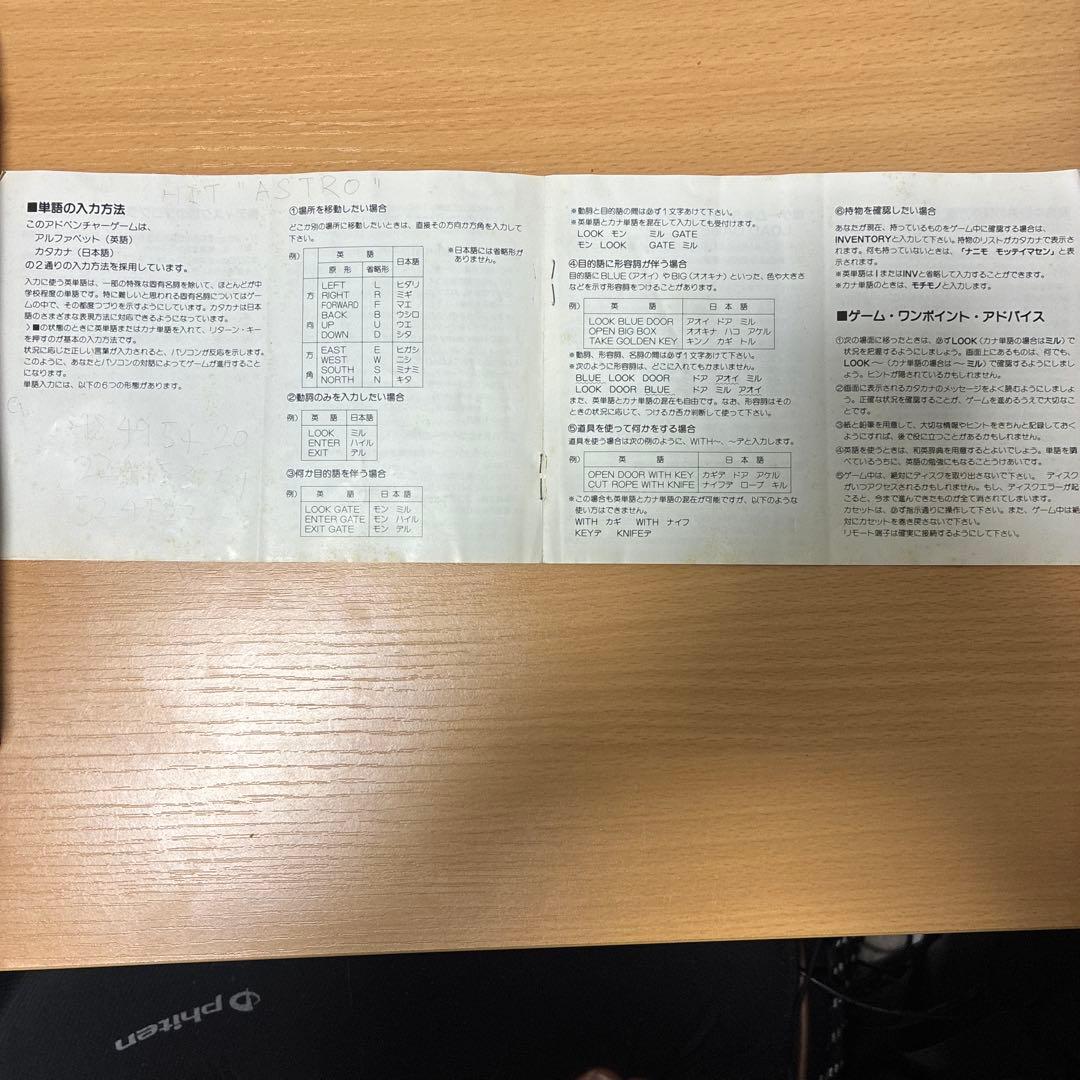 HIT "ASTRO"
■単語の入力方法
このアドベンチャーゲームは、
アルファベット（英語）
カタカナ（日本語）
の2通りの入力方法を採用しています。
入力に使う英単語は、一部の特殊な固有名詞を除いて、ほとんどが中
学校程度の単語です。特に難しいと思われる固有名詞についてはゲー
ムの中で、その都度つづりを示すようにしています。カタカナは日本
語のさまざまな表現方法に対応できるようになっています。
〉■の状態のときに英単語またはカナ単語を入れて、リターン・キー
を押すのが基本の入力方法です。
状況に応じた正しい言葉が入力されると、パソコンが反応を示します。
このように、あなたとパソコンの対話によってゲームが進行すること
になります。
単語入力には、以下の6つの形態があります。
①場所を移動したい場合
どこか別の場所に移動したいときは、直接その方向か方角を入力して
下さい。
例）
英 語 日本語
原 形 省略形
方向
LEFT L ヒダリ
RIGHT R ミギ
FORWARD F マエ
BACK B ウシロ
UP U ウエ
DOWN D シタ
方角
EAST E ヒガシ
WEST W ニシ
SOUTH S ミナミ
NORTH N キタ
※日本語には省略形が
ありません。
②動詞のみを入力したい場合
例）
英 語 日本語
LOOK ミル
ENTER ハイル
EXIT デル
③何か目的語を伴う場合
例）
英 語 日 本 語
LOOK GATE モン ミル
ENTER GATE モン ハイル
EXIT GATE モン デル
※動詞と目的語の間は必ず1文字あけて下さい。
※英単語とカナ単語を混在して入力しても受付けます。
LOOK モン ミル GATE
モン LOOK GATE ミル
④目的語に形容詞が伴う場合
目的語にBLUE（アオイ）やBIG（オオキナ）といった、色や大きさ
などを示す形容詞をつけることがあります。
例）
英 語 日 本 語
LOOK BLUE DOOR アオイ ドア ミル
OPEN BIG BOX オオキナ ハコ アケル
TAKE GOLDEN KEY キンノ カギ トル
※動詞、形容詞、名詞の間は必ず1文字あけて下さい。
※次のように形容詞は、どこに入れてもかまいません。
BLUE LOOK DOOR ドア アオイ ミル
LOOK DOOR BLUE ドア ミル アオイ
また、英単語とカナ単語の混在も自由です。なお、形容詞はその
ときの状況に応じて、つけるか否か判断して使って下さい。
⑤道具を使って何かをする場合
道具を使う場合は次の例のように、WITH～、～デと入力します。
例）
英 語 日 本 語
OPEN DOOR WITH KEY カギデ ドア アケル
CUT ROPE WITH KNIFE ナイフデ ロープ キル
※この場合も英単語とカナ単語の混在が可能ですが、以下のような
使い方はできません。
WITH カギ WITH ナイフ
KEYデ KNIFEデ
⑥持物を確認したい場合
あなたが現在、持っているものをゲーム中に確認する場合は、
INVENTORYと入力して下さい。持物のリストがカタカナで表示さ
れます。何も持っていないときは、「ナニモ モッテイマセン」と表
示されます。
※英単語はIまたはINVと省略して入力することができます。
※カナ単語のときは、モチモノと入力します。
■ゲーム・ワンポイント・アドバイス
①次の場面に移ったときは、必ずLOOK（カナ単語の場合はミル）で
状況を把握するようにしましょう。画面上にあるものは、何でも、
LOOK～（カナ単語の場合は～ミル）で確認するようにしまし
ょう。ヒントが隠されているかもしれません。
②画面に表示されるカタカナのメッセージをよく読むようにしましょ
う。正確な状況を確認することが、ゲームを進めるうえで大切なこ
とです。
③紙と鉛筆を用意して、大切な情報やヒントをきちんと記録しておく
ようにすれば、後で役に立つことがあるかもしれません。
④英語を使うときは、和英辞典を用意するとよいでしょう。単語を調
べているうちに、英語の勉強にもなることうけあいです。
⑤ゲーム中は、絶対にディスクを取り出さないで下さい。 ディスク
がいつアクセスされるかもしれません。もし、ディスクエラーが起
こると、今まで進んできたものが全て消されてしまいます。
カセットは、必ず指示通りに操作して下さい。また、ゲーム中は絶
対にカセットを巻き戻さないで下さい。
リモート端子は確実に接続するようにして下さい。
phiten